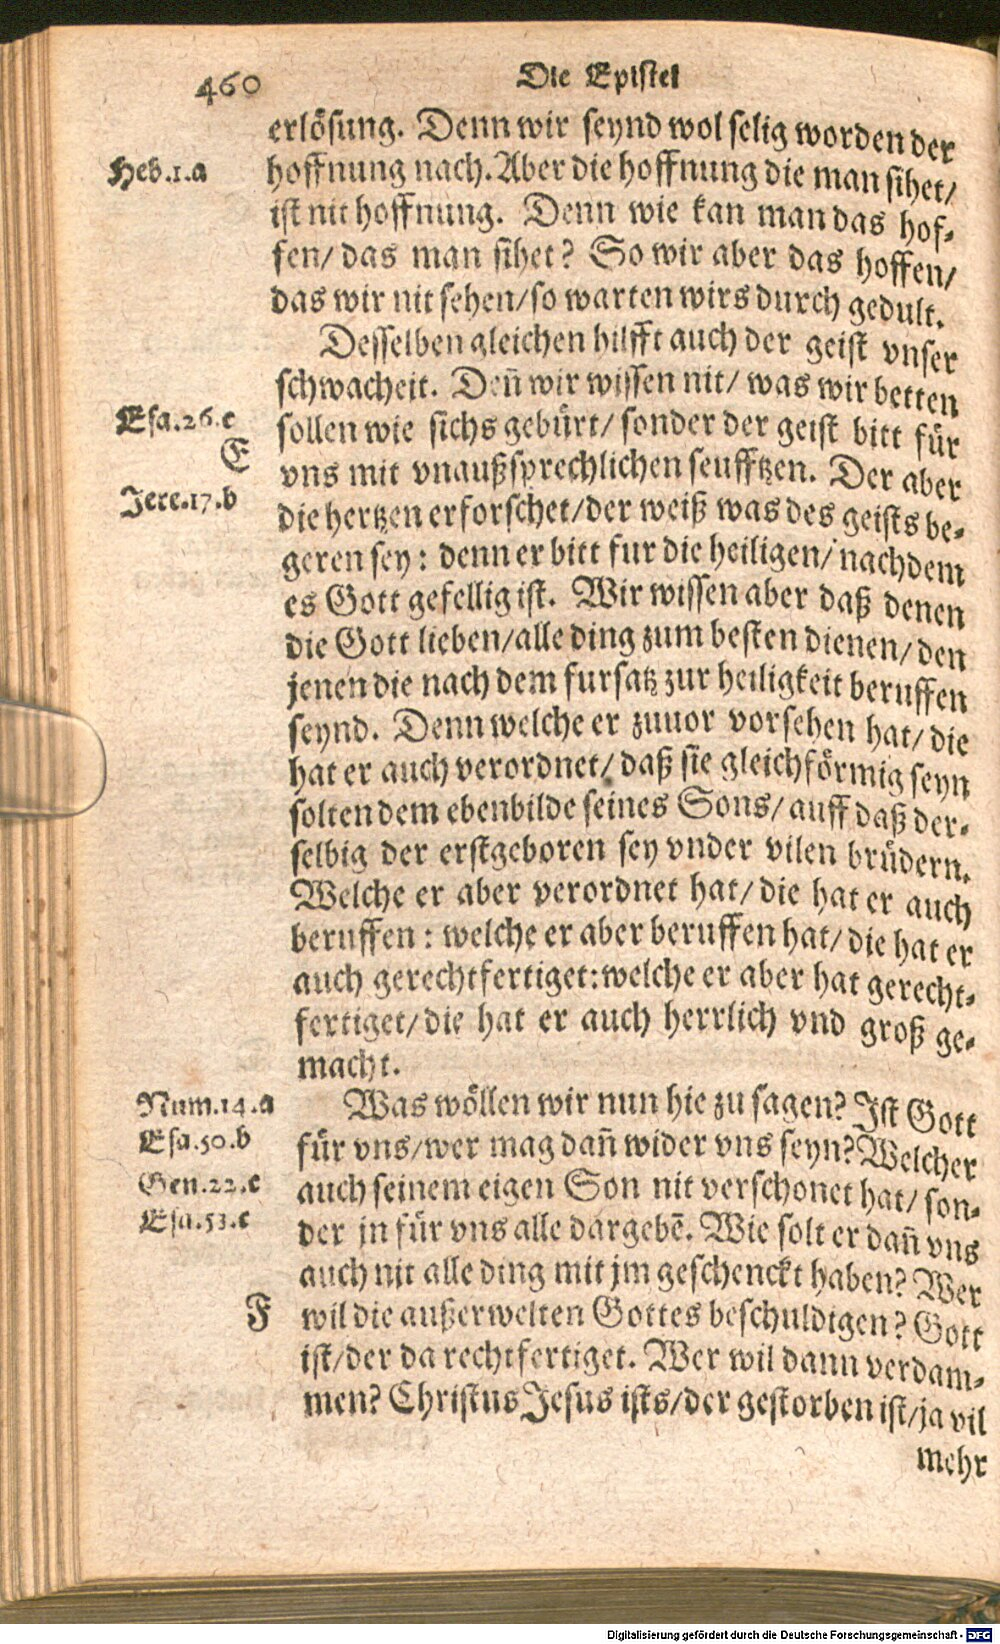 460
Die Epistel
erlösung. Denn wir seynd wol selig worden der
Heb.1.a
hoffnung nach. Aber die hoffnung die man sihet/
ist nit hoffnung. Denn wie kan man das hof-
fen/ das man sihet? So wir aber das hoffen/
das wir nit sehen/ so warten wirs durch gedult.
Desselben gleichen hilfft auch der geist vnser
schwacheit. Deñ wir wissen nit/ was wir betten
Esa.26.c
sollen wie sichs gebürt/ sonder der geist bitt für
E
vns mit vnaußsprechlichen seufftzen. Der aber
Jere.17.b
die hertzen erforschet/ der weiß was des geists be-
geren sey: denn er bitt fur die heiligen/ nachdem
es Gott gefellig ist. Wir wissen aber daß denen
die Gott lieben/ alle ding zum besten dienen/ den
jenen die nach dem fursatz zur heiligkeit beruffen
seynd. Denn welche er zuuor vorsehen hat/ die
hat er auch verordnet/ daß sie gleichförmig seyn
solten dem ebenbilde seines Sons/ auff daß der-
selbig der erstgeboren sey vnder vilen brüdern.
Welche er aber verordnet hat/ die hat er auch
beruffen: welche er aber beruffen hat/ die hat er
auch gerechtfertiget: welche er aber hat gerecht-
fertiget/ die hat er auch herrlich vnd groß ge-
macht.
Num.14.a
Was wöllen wir nun hie zu sagen? Ist Gott
Esa.50.b
für vns/ wer mag dañ wider vns seyn? Welcher
Gen.22.c
auch seinem eigen Son nit verschonet hat/ son-
Esa.53.c
der jn für vns alle dargebē. Wie solt er dañ vns
auch nit alle ding mit jm geschenckt haben? Wer
F
wil die außerwelten Gottes beschuldigen? Gott
ist/ der da rechtfertiget. Wer wil dann verdam-
men? Christus Jesus ists/ der gestorben ist/ ja vil
mehr
Digitalisierung gefördert durch die Deutsche Forschungsgemeinschaft - DFG